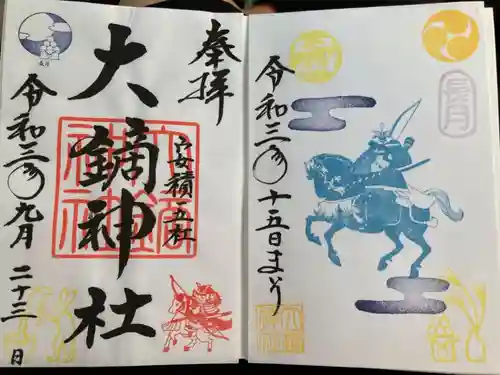 奉拝
安積五社
大鏑神社
令和三年九月二十三日
長月
令和三年
十五日まいり